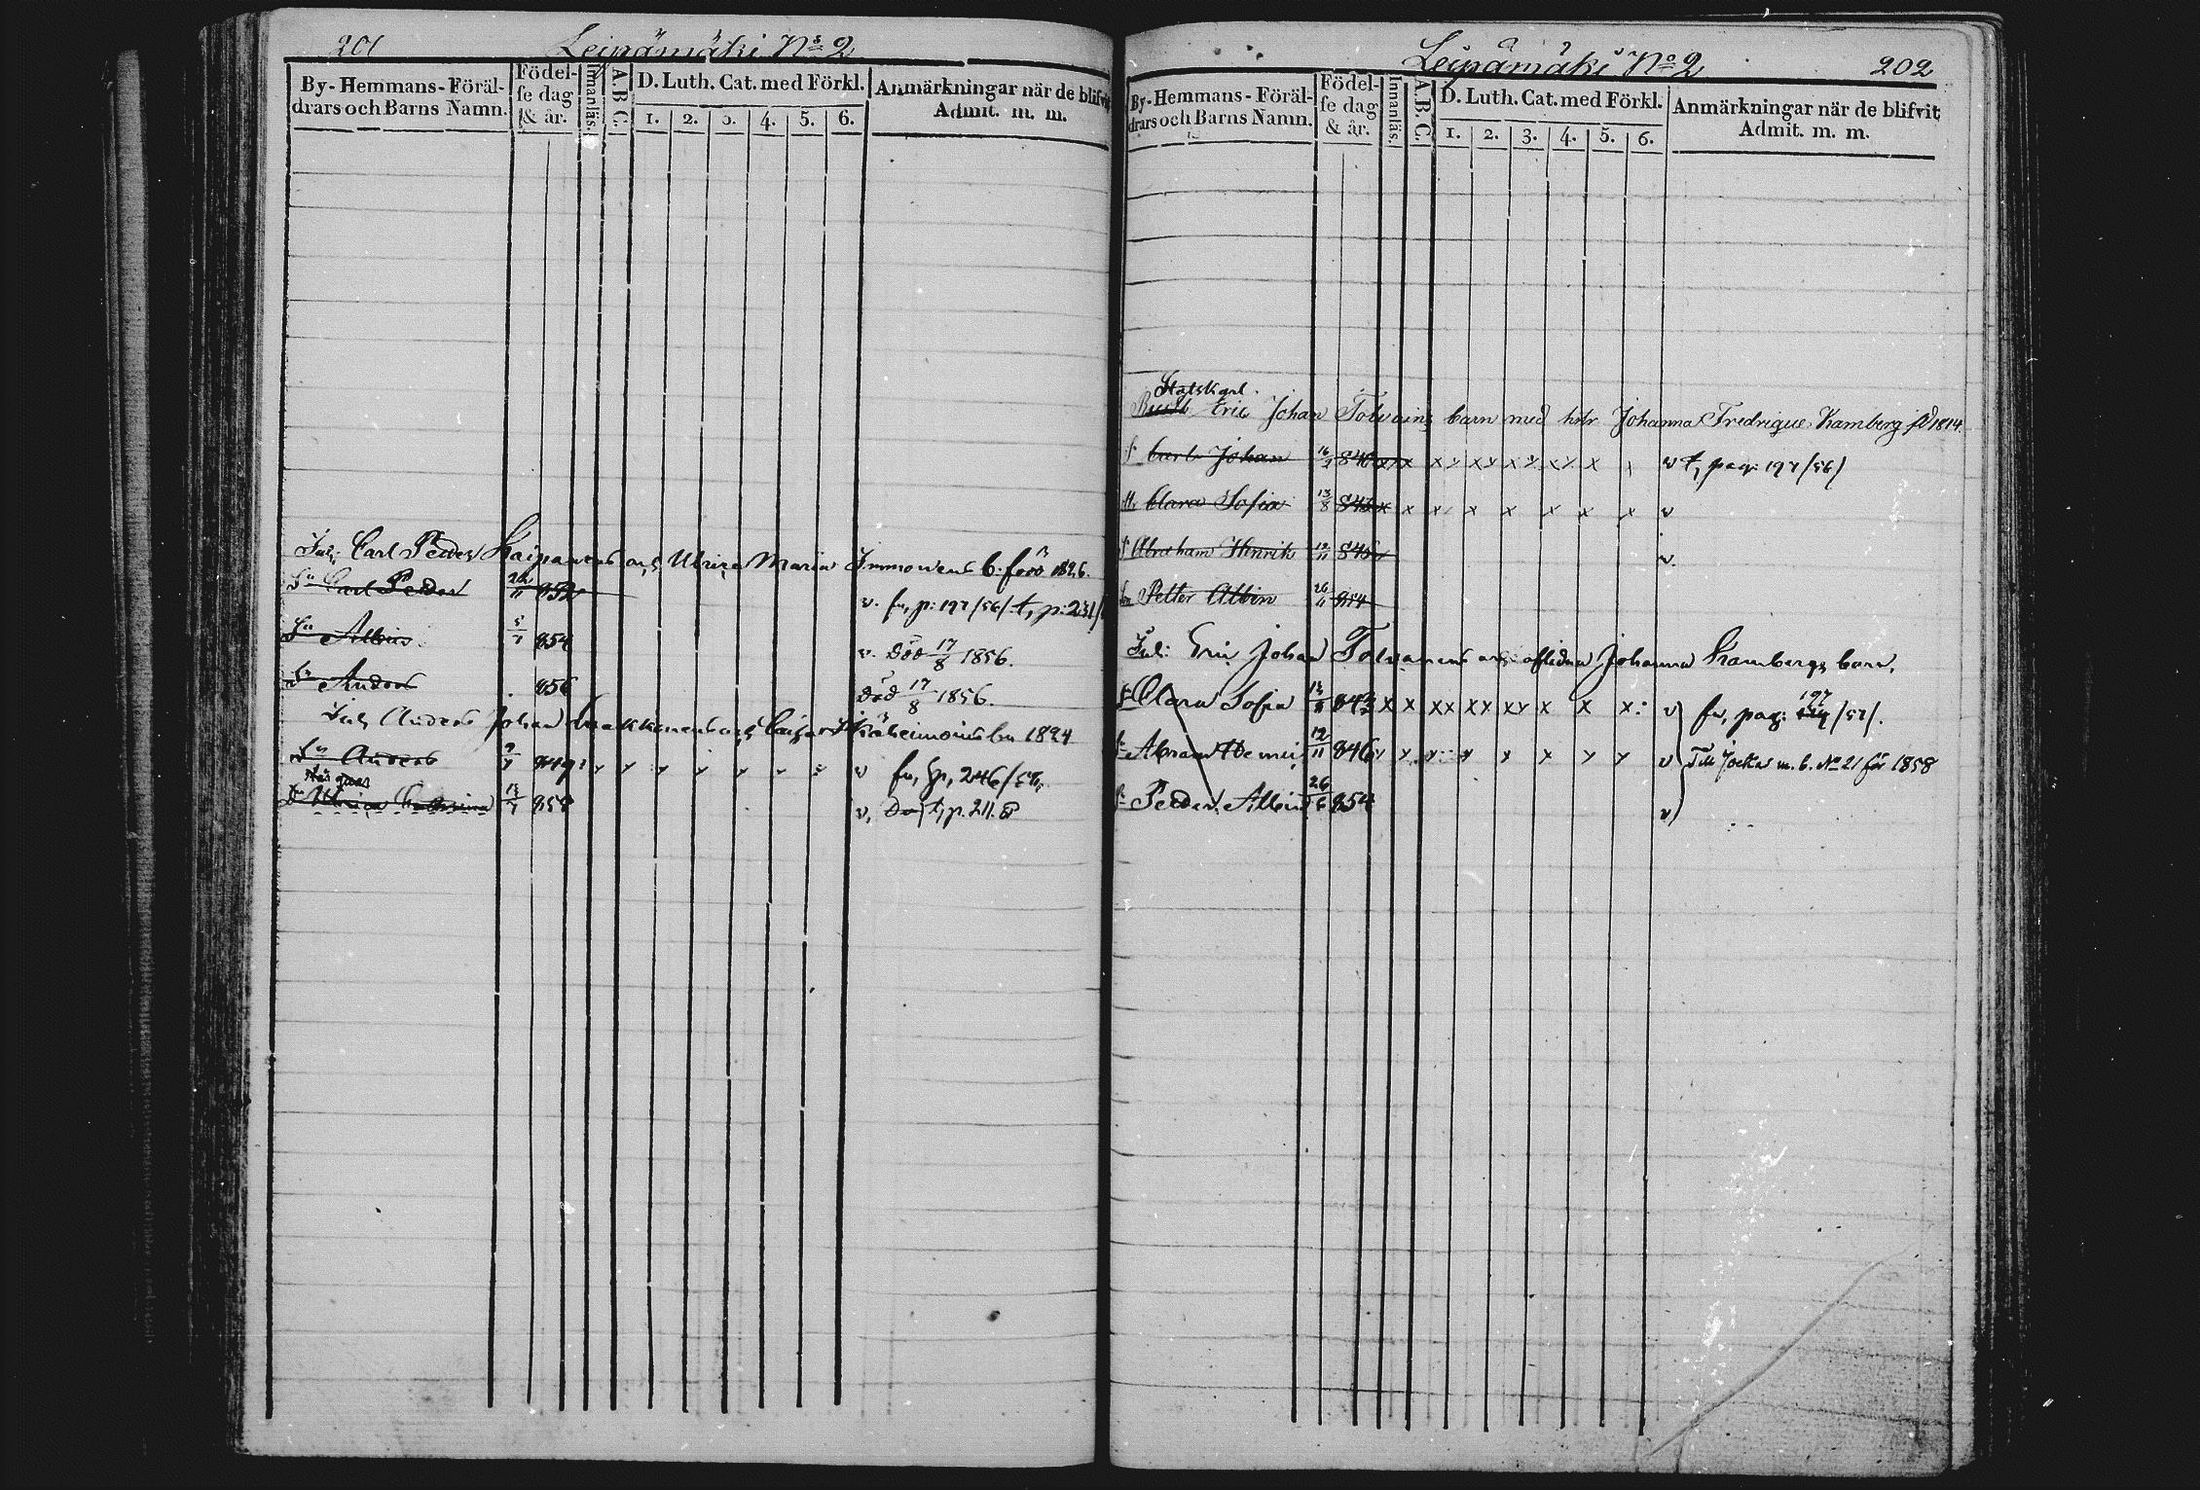 201
Leipämäki No 2
By- Hemmans- Föräl-
drars och Barns Namn.
Födel-
se dag
& år.
Innanläs.
A.B.C.
D. Luth. Cat. med Förkl.
1. 2. 3. 4. 5. 6.
Anmärkningar när de blifvit
Admit. m. m.
Inh: Carl Peder och Ulrica Maria Immonens b. född 1826.
Sn Carl Peder 852 v. fr, p: 197/56/ t, p: 231/
Sn Albin 5/7 854 v. död 17/8 1856.
Sn Anders 856 död 17/8 1856.
Inh, Anders Johan och Caisa bn 1824
Sn Anders 849 v fr, p, 246/
Ulrica Cathrina 858 v, t, p. 211.
Leipämäki No 2
202
By- Hemmans- Föräl-
drars och Barns Namn.
Födel-
se dag
& år.
Innanläs.
A.B.C.
D. Luth. Cat. med Förkl.
1. 2. 3. 4. 5. 6.
Anmärkningar när de blifvit
Admit. m. m.
Statskarl
Eric Johan Tolvains barn med hstr Johanna Fredrique Kamberg fd 1814.
S Carl Johan 16/2 840 x x x x x x x x x x v t, pag: 197/56/
Clara Sofia 13/8 843 x x x x x x x x v
S Abraham Henrik 12/11 846 v.
Petter Albin 26/11 854
Inh: Eric Johan Tolvanens och aflidna Johanna Kambergs barn,
Clara Sofia 13/8 843 x x xx xx xx x x x: v fr, pag: 197 /57/.
S: Abram Henric 12/11 846 v Till Jockas m. b. No 21 för 1858
S: Peder Albin 26/6 854 v